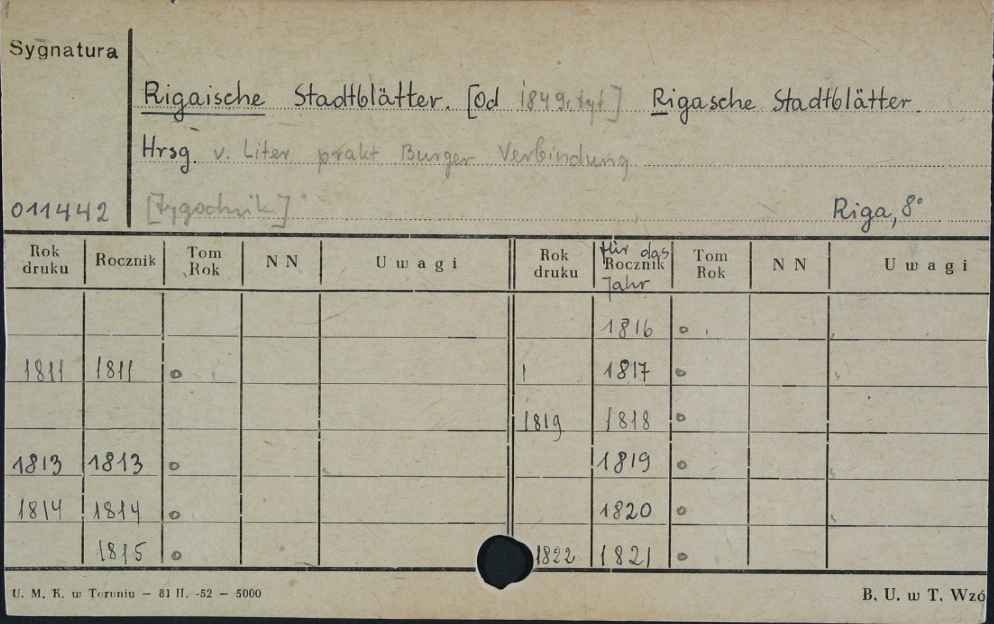 Sygnatura
Rigaische Stadtblätter. [Od 1849, tyt] Rigasche Stadtblätter
Hrsg. v. Liter prakt Burger Verbindung
011442 [tygodnik] Riga, 8°
Rok druku Rocznik Tom Rok NN Uwagi Rok druku für das Rocznik Jahr Tom Rok NN Uwagi
1816 o
1811 1811 o 1817 o
1819 1818 o
1813 1813 o 1819 o
1814 1814 o 1820 o
1815 o 1822 1821 o
U. M. K. w Toruniu — 81 II. -52 — 5000 B. U. w T. Wzó